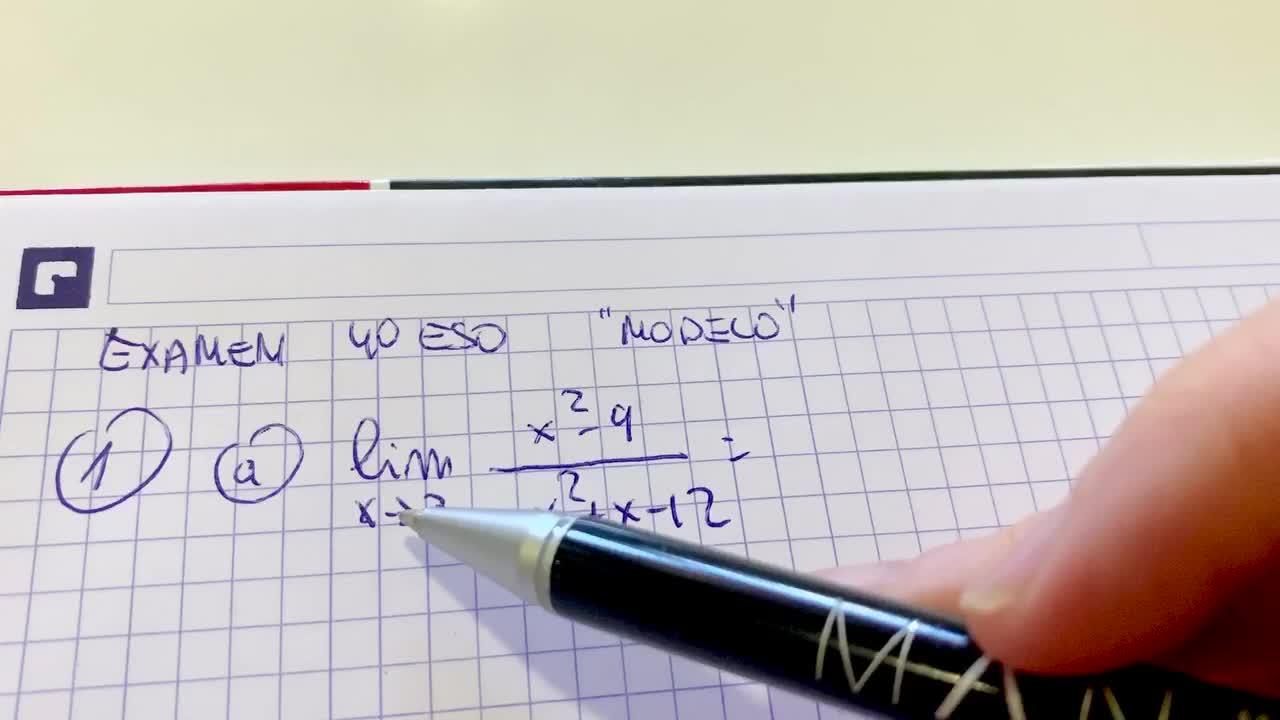 EXAMEN 4O ESO "MODELO"
1 a lim x² - 9 =
x → x² + x - 12
M A